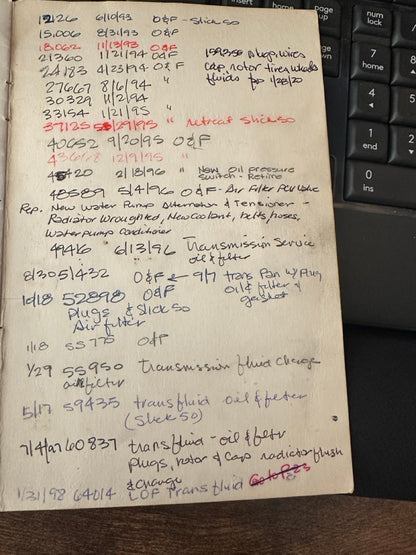 12126 6/10/93 O&F - Slick 50
15,006 8/31/93 O&F
18,062 11/13/93 O&F
21360 1/21/94 O&F
24183 4/23/94 O&F
cap, rotor
27667 8/6/94 "
30329 11/2/94
33154 1/21/95 "
37125 5/29/95 " retreat slick 50
40052 9/20/95 O&F
12/9/95 "
2/18/96 " New Oil pressure
Switch - Retime
48589 5/4/96 O&F - Air Filter PCV Valve
Rep. New Water Pump Alternator & Tensioner -
Radiator Wroughted, New Coolant, belts, hoses,
Water pump Conditioner
49416 6/13/96 Transmission Service
oil & filter
8/30 51432 O&F ← 9/7 trans Pan w/ Plug
oil & filter &
gasket
10/18 52898 O&F
Plugs & Slick 50
Air filter
1/18 55775 O&F
1/29 55950 Transmission fluid Change
air filter
5/17 59435 trans fluid oil & filter
(Slick 50)
7/4/97 60837 trans fluid - oil & filter
plugs, rotor & Cap radiator flush
& change
1/31/98 64014 LOF Trans fluid
num
lock
7
home
8
4
1
end
2
0
ins